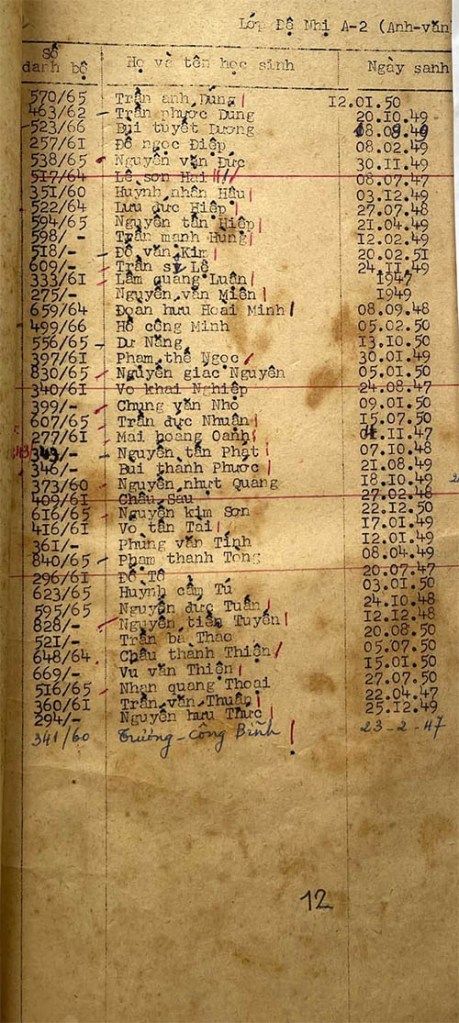 Lớp Đệ Nhị A-2 (Anh-văn
Số danh bộ Họ và tên học sinh Ngày sanh
570/65 Trần anh Dũng 12.01.50
463/62 Trần phước Dũng 20.10.49
523/66 Bùi tuyết Dương
257/61 Đỗ ngọc Điệp 08.02.49
538/65 Nguyễn văn Đức 30.11.49
517/64 Lê sơn Hai 08.07.47
351/60 Huỳnh nhân Hậu 03.12.49
522/64 Lưu đức Hiệp 27.07.48
594/65 Nguyễn tấn Hiệp 21.04.49
598/- Trần mạnh Hùng 12.02.49
518/- Đỗ văn Kim 20.02.51
609/- Trần sỹ Lê 24.11.49
333/61 Lâm quang Luân 1947
275/- Nguyễn văn Miên 1949
659/64 Đoàn hưu Hoài Minh 08.09.48
499/66 Hồ công Minh 05.02.50
556/65 Dư Năng 13.10.50
397/61 Phạm thế Ngọc 30.01.49
830/65 Nguyễn giác Nguyên 05.01.50
340/61 Vo khai Nghiệp 24.08.47
399/- Chung văn Nhỏ 09.01.50
607/65 Trần đực Nhuận 15.07.50
277/61 Mai hoang Oanh 11.47
343/- Nguyễn tấn Phát 07.10.48
346/- Bùi thanh Phước 21.08.49
373/60 Nguyễn nhựt Quang 18.10.49
409/61 Châu Sáu 27.02.48
616/65 Nguyễn kim Sơn 22.12.50
416/61 Vo tấn Tài 17.01.49
361/- Phùng văn Tính 12.01.49
840/65 Phạm thanh Tòng 08.04.49
296/61 Đỗ Tô 20.07.47
623/65 Huỳnh cẩm Tú 03.01.50
595/65 Nguyễn đưc Tuấn 24.10.48
828/- Nguyễn tiến Tuyển 12.12.48
521/- Trần bá Thao 20.08.50
648/64 Châu thành Thiện 05.07.50
669/- Vu văn Thiện 15.01.50
516/65 Nhan quang Thoại 27.07.50
360/61 Trần văn Thuận 22.04.47
294/- Nguyễn hưu Thức 25.12.49
341/60 Trương - Công Bình 23-2-47
12